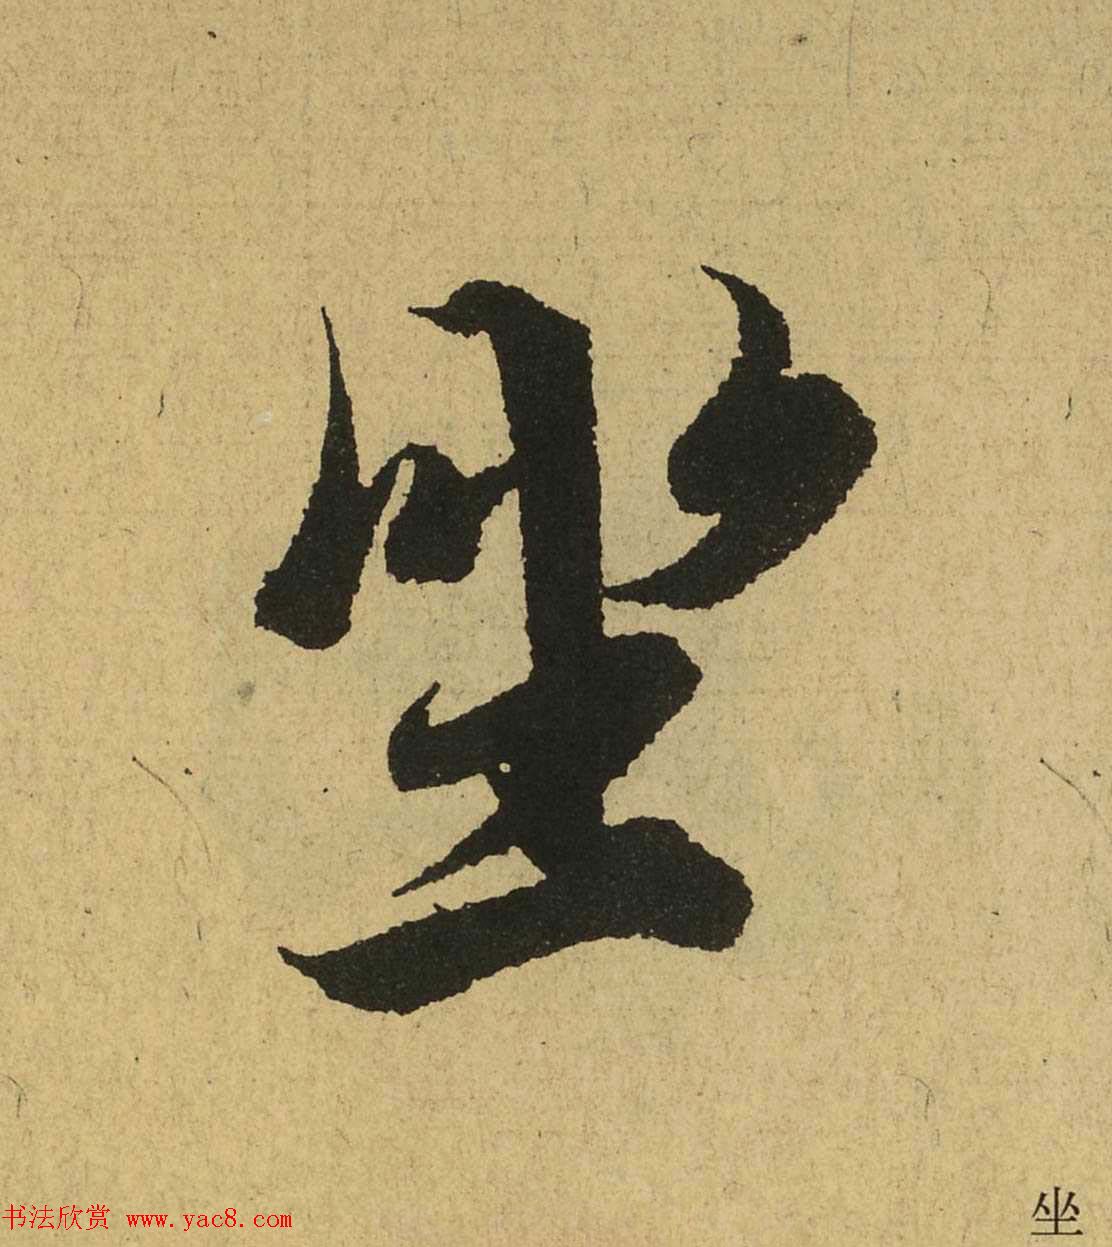 坐
书法欣赏 www.yac8.com
坐